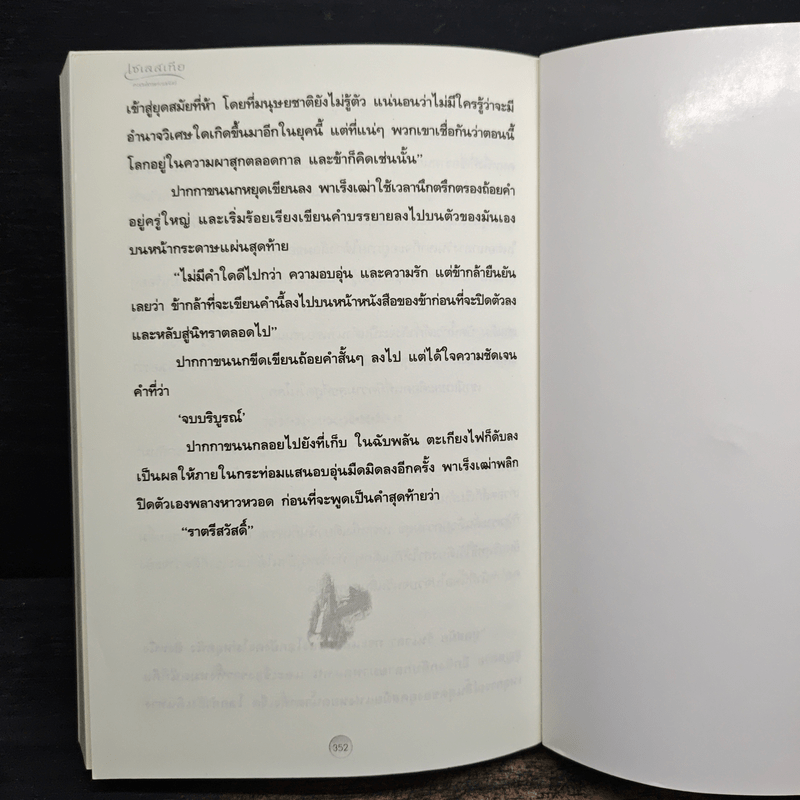 เซเลสเทีย
เข้าสู่ยุดสมัยที่ห้า โดยที่มนุษยชาติยังไม่รู้ตัว แน่นอนว่าไม่มีใครรู้ว่าจะมี
อำนาจวิเศษใดเกิดขึ้นมาอีกในยุคนี้ แต่ที่แน่ๆ พวกเขาเชื่อกันว่าตอนนี้
โลกอยู่ในความผาสุกตลอดกาล และข้าก็คิดเช่นนั้น”
ปากกาขนนกหยุดเขียนลง พาเร็งเฒ่าใช้เวลานึกตรึกตรองถ้อยคำ
อยู่ครู่ใหญ่ และเริ่มร้อยเรียงเขียนคำบรรยายลงไปบนตัวของมันเอง
บนหน้ากระดาษแผ่นสุดท้าย
“ไม่มีคำใดดีไปกว่า ความอบอุ่น และความรัก แต่ข้ากล้ายืนยัน
เลยว่า ข้ากล้าที่จะเขียนคำนี้ลงไปบนหน้าหนังสือของข้าก่อนที่จะปิดตัวลง
และหลับสู่นิทราตลอดไป”
ปากกาขนนกขีดเขียนถ้อยคำสั้นๆ ลงไป แต่ได้ใจความชัดเจน
คำที่ว่า
‘จบบริบูรณ์’
ปากกาขนนกลอยไปยังที่เก็บ ในฉับพลัน ตะเกียงไฟก็ดับลง
เป็นผลให้ภายในกระท่อมแสนอบอุ่นมืดมิดลงอีกครั้ง พาเร็งเฒ่าพลิก
ปิดตัวเองพลางหาวหวอด ก่อนที่จะพูดเป็นคำสุดท้ายว่า
“ราตรีสวัสดิ์”
352